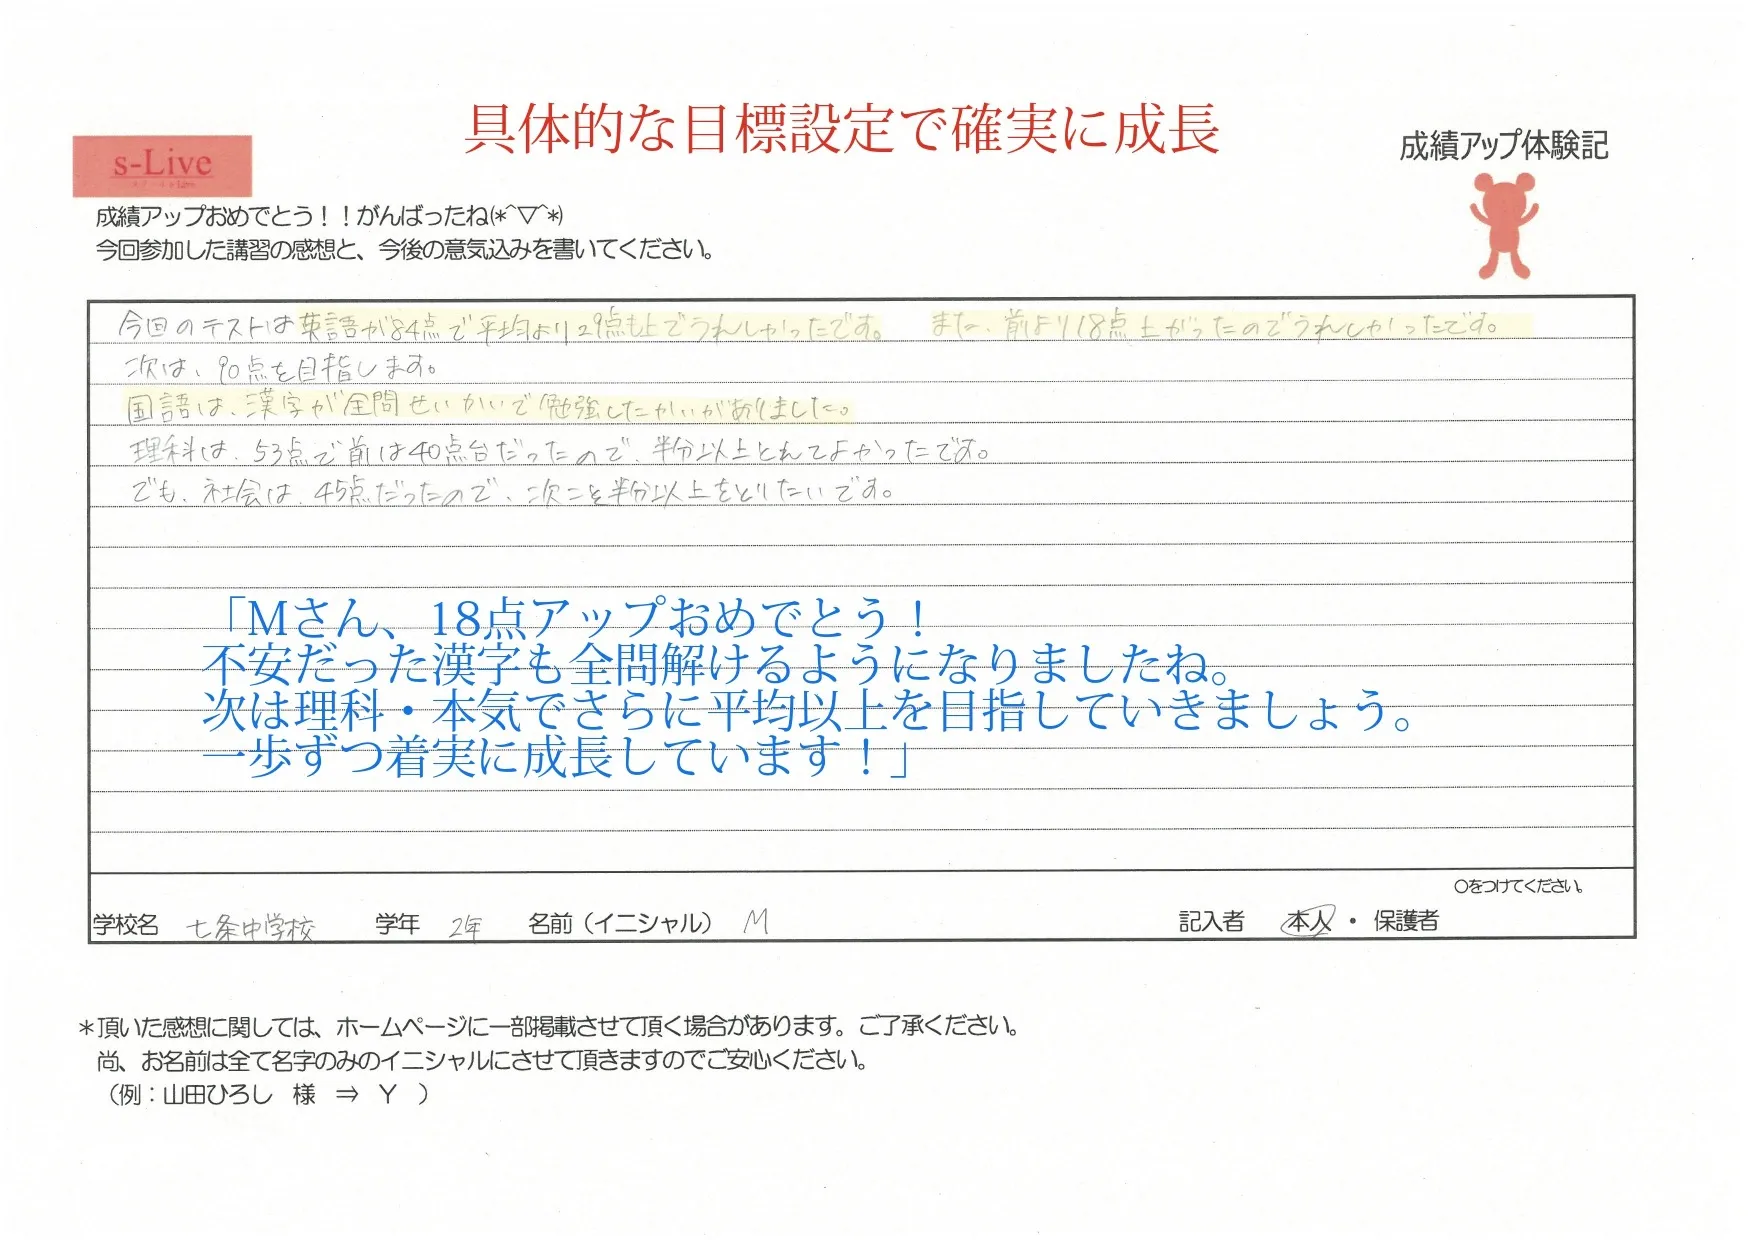 具体的な目標設定で確実に成長
s-Live
成績アップ体験記
成績アップおめでとう！！がんばったね(*^▽^*)
今回参加した講習の感想と、今後の意気込みを書いてください。
今回のテストは英語が84点で平均より29点も上でうれしかったです。 また、前より18点上がったのでうれしかったです。
次は、90点を目指します。
国語は、漢字が全問せいかいで勉強したかいがありました。
理科は、53点で前は40点台だったので、半分以上とれてよかったです。
でも、社会は、45点だったので、次こそ半分以上をとりたいです。
「Mさん、18点アップおめでとう！
不安だった漢字も全問解けるようになりましたね。
次は理科・本気でさらに平均以上を目指していきましょう。
一歩ずつ着実に成長しています！」
〇をつけてください。
学校名 七条中学校 学年 2年 名前（イニシャル） M 記入者 本人 ・ 保護者
＊頂いた感想に関しては、ホームページに一部掲載させて頂く場合があります。ご了承ください。
尚、お名前は全て名字のみのイニシャルにさせて頂きますのでご安心ください。
（例：山田ひろし 様 ⇒ Y ）